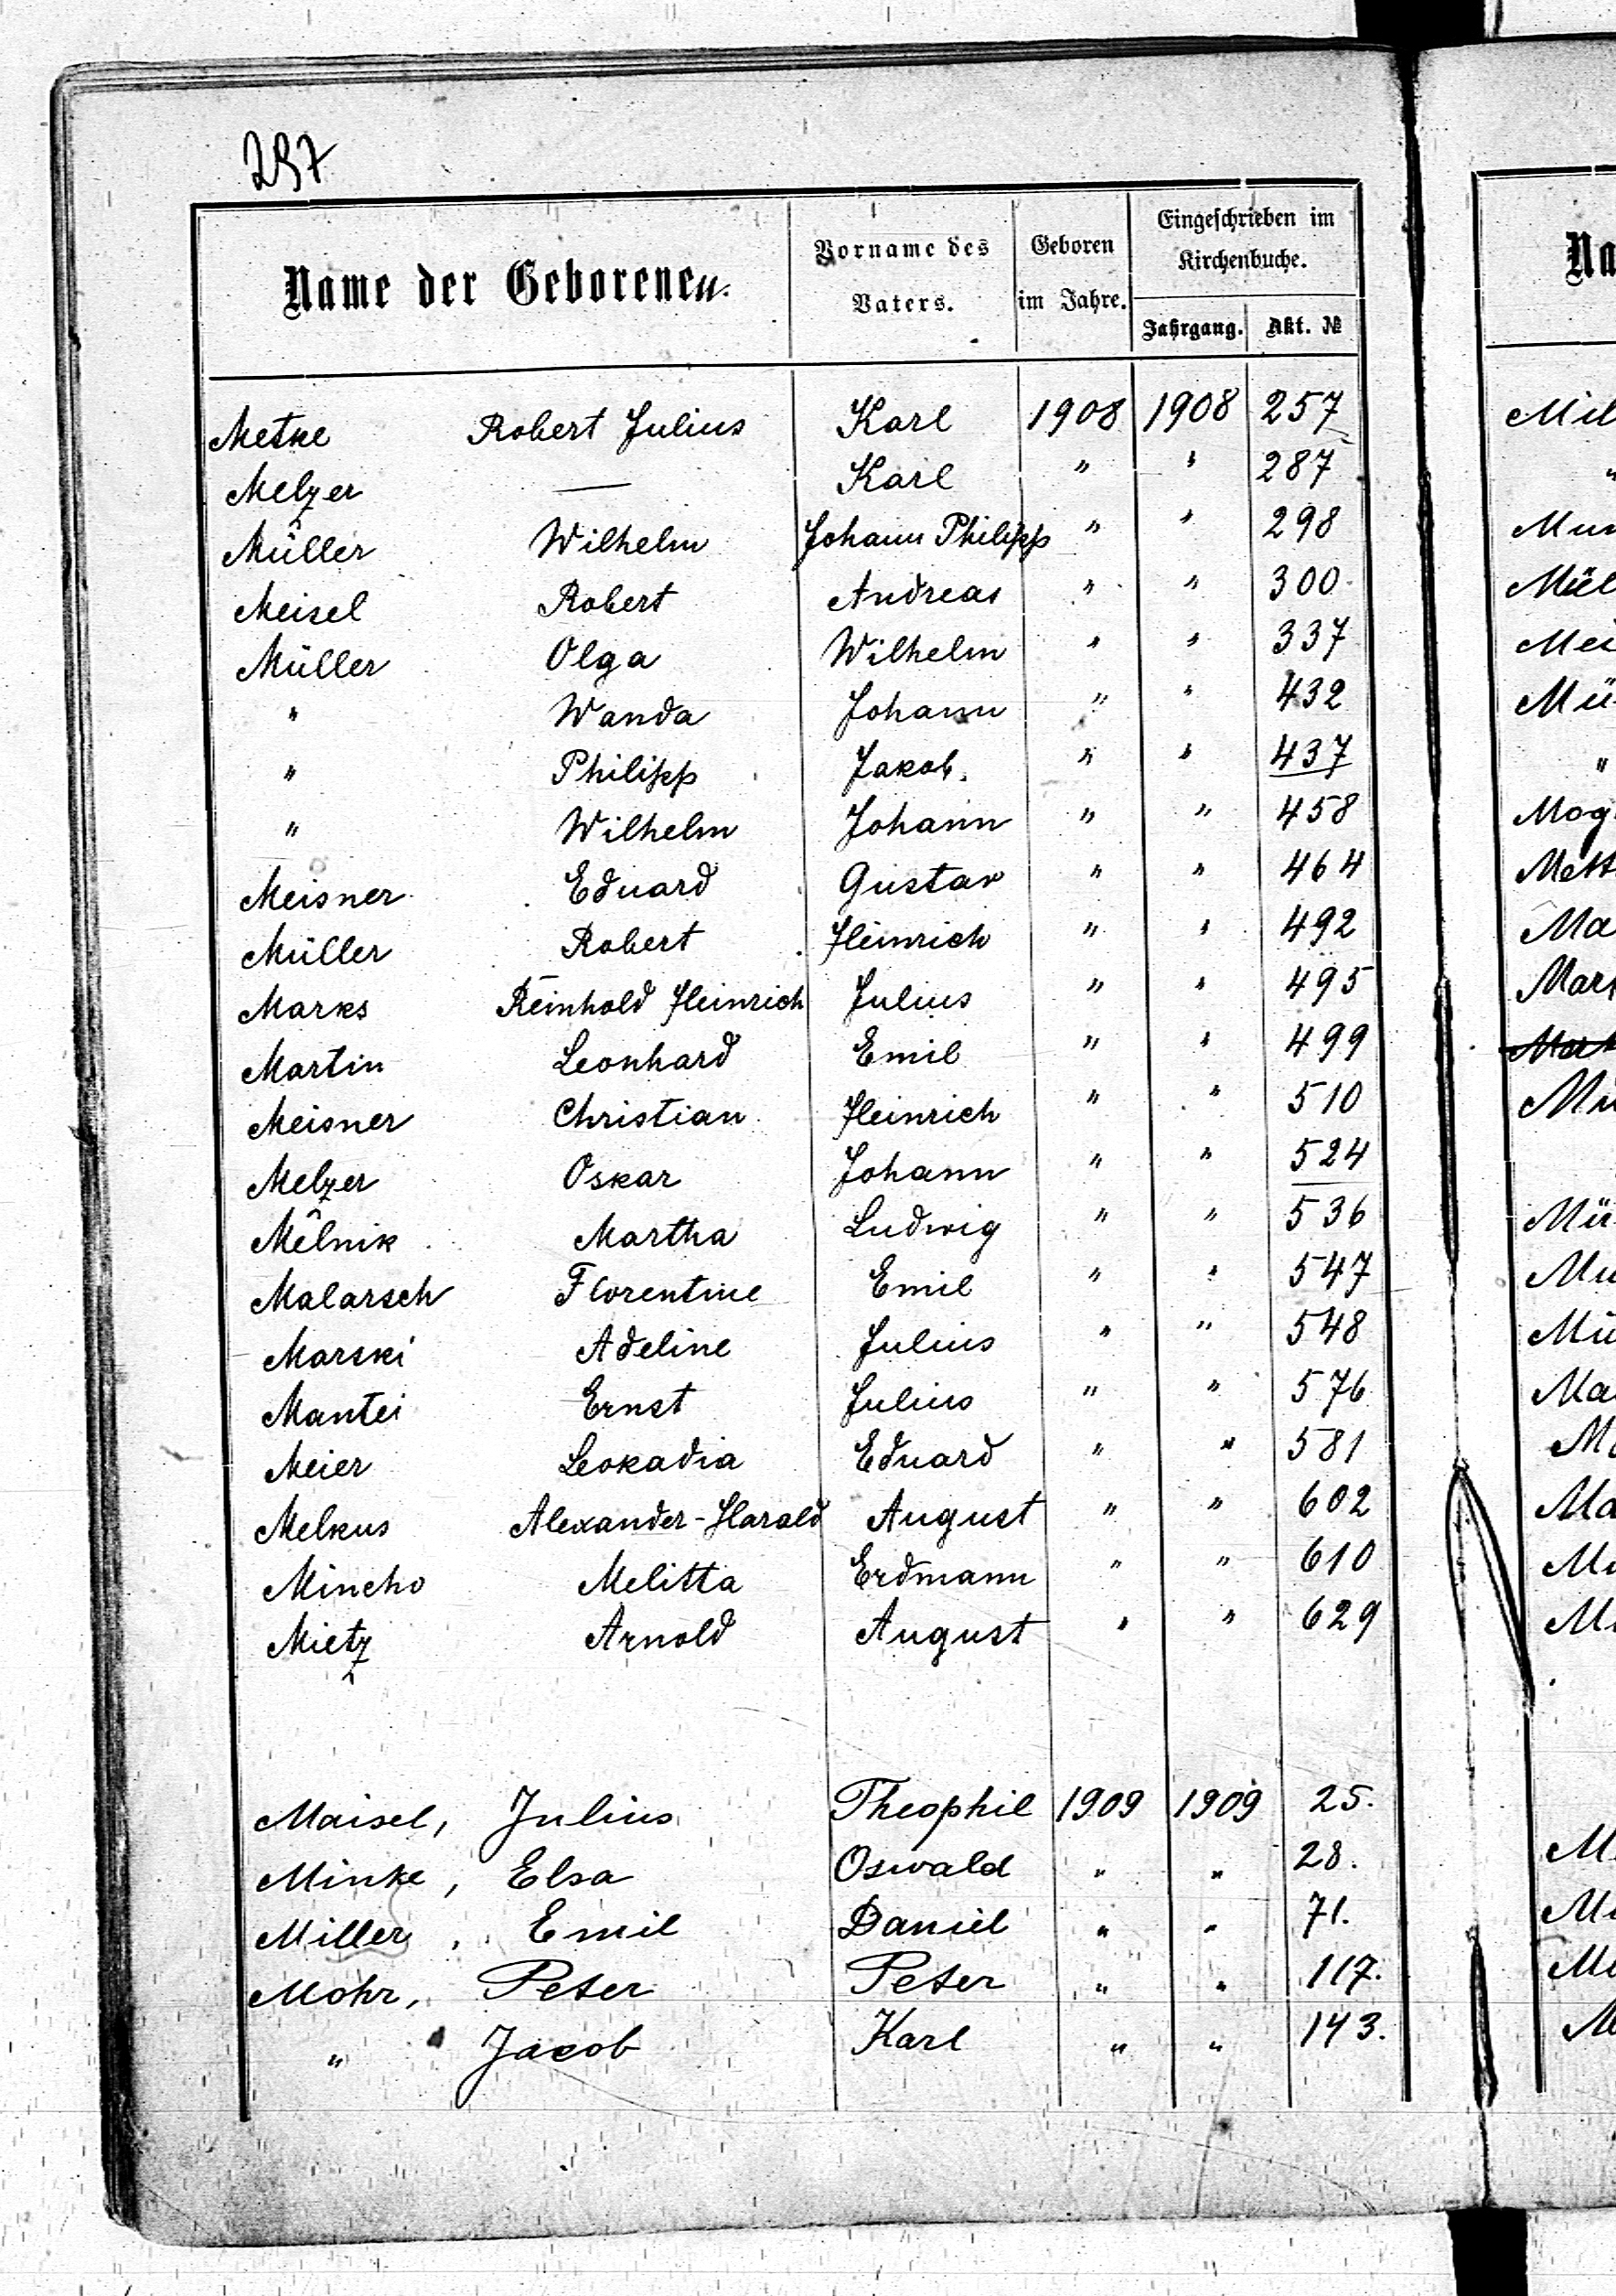 257
Name der Geborenen.
Vorname des Vaters.
Geboren im Jahre.
Eingeschrieben im Kirchenbuche.
Jahrgang. Akt. №
Metke Robert Julius Karl 1908 1908 257
Melzer — Karl " " 287
Müller Wilhelm Johann Philipp " " 298
Meisel Robert Andreas " " 300
Müller Olga Wilhelm " " 337
" Wanda Johann " " 432
" Philipp Jakob. " " 437
" Wilhelm Johann " " 458
Meisner Eduard Gustav " " 464
Müller Robert Heinrich " " 492
Marks Reinhold Heinrich Julius " " 495
Martin Leonhard Emil " " 499
Meisner Christian Heinrich " " 510
Melzer Oskar Johann " " 524
Mêlnik Martha Ludwig " " 536
Malarsch Florentine Emil " " 547
Marski Adeline Julius " " 548
Mantei Ernst Julius " " 576
Meier Leokadia Eduard " " 581
Melkus Alexander-Harald August " " 602
Mincho Melitta Erdmann " " 610
Mietz Arnold August " " 629
Maisel, Julius Theophil 1909 1909 25.
Minke, Elsa Oswald " " 28.
Miller, Emil Daniel " " 71.
Mohr, Peter Peter " " 117.
" Jacob Karl " " 143.